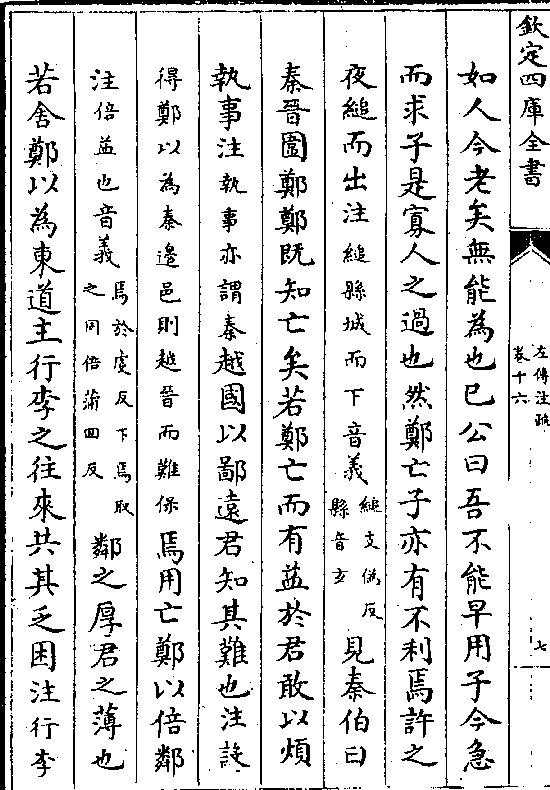 欽定四庫全書
左傳注疏
卷十六
七
如人今老矣無能為也已公曰吾不能早用子今急
而求子是寡人之過也然鄭亡子亦有不利焉許之
夜縋而出注縋縣城而下音義縋支偽反縣音玄見秦伯曰
秦晉圍鄭鄭既知亡矣若鄭亡而有益於君敢以煩
執事注執事亦謂秦越國以鄙遠君知其難也注設
得鄭以為秦邊邑則越晉而難保焉用亡鄭以倍鄰
注倍益也音義焉於䖍反下焉取之同倍蒲回反鄰之厚君之薄也
若舍鄭以為東道主行李之往來共其乏困注行李